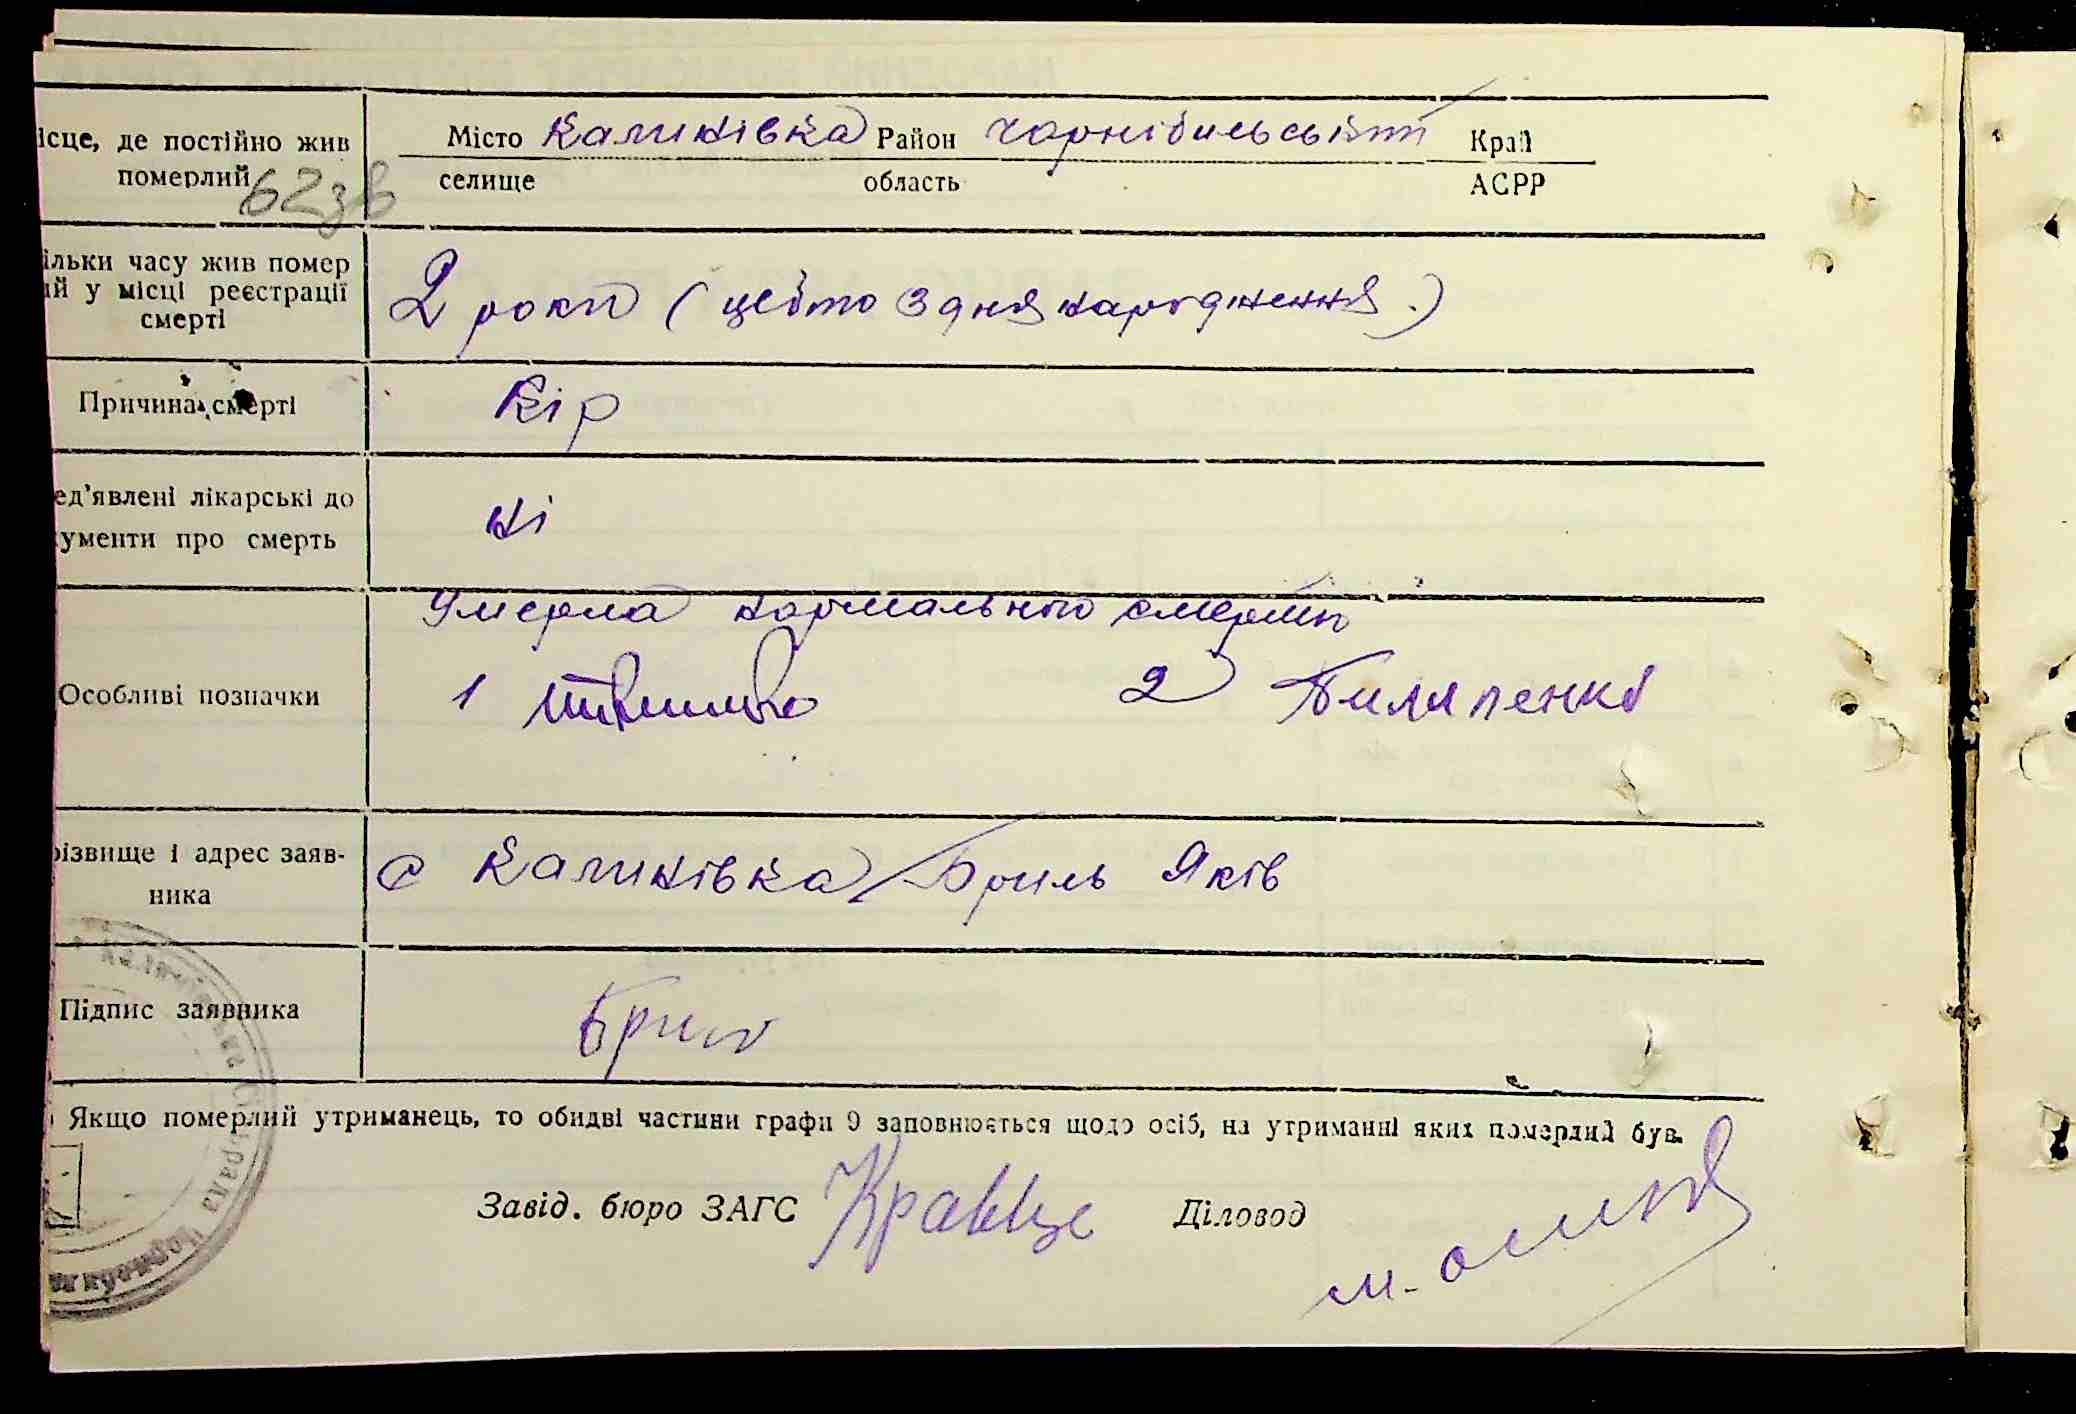 ісце, де постійно жив
померлий
62зв
Місто Калинівка Район Чорнібильський Край
селище область АСРР
ільки часу жив помер
ий у місці реєстрації
смерті
2 роки (цебто з дня народження.)
Причина смерті
Кір
ед'явлені лікарські до
кументи про смерть
ні
Умерла нормальною смертю
Особливі позначки
1
2 Пилипенко
різвище і адрес заяв-
ника
с Калинівка Бриль Яків
Підпис заявника
Бриль
Якщо померлий утриманець, то обидві частини графи 9 заповнюється щодо осіб, на утриманні яких померлий був.
Завід. бюро ЗАГС Кравце Діловод